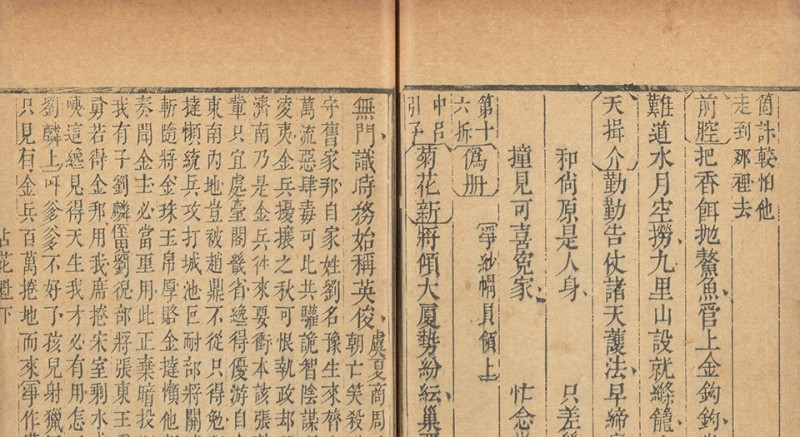 箇計較怕他
走到那裡去
前腔把香餌拋鰲魚管上金鉤鉤
難道水月空撈九里山設就絲籠
天揖介勤勤告仗諸天護法早締
和尚原是人身　只差
撞見可喜冤家　忙念
第十六折　偽册　爭紗帽員領上
中呂引子　菊花新將傾大厦勢紛紜巢
無門識時務始稱英俊虞夏商周
朝亡笑殺
守舊家邦自家姓劉名豫生來齊
萬流惡肆毒可比共驩詭智陰謀
凌夷金兵擾攘之秋可恨執政却
濟南乃是金兵往來要衝本該張
輩只宜處臺閣畿省纔得優游自
東南內地豈被趙鼎不從只得勉
撻懶統兵攻打城池叵耐部將關
斬隨將金珠玉帛厚賂金撻懶他
奏聞金主必當重用此正棄暗投
我有子劉麟侄男劉猊部將張東王
勇若得金邦用我席捲宋室剩水
咦這纔見得天生我才必有用怎
劉麟上吓爹爹不好了孩兒射獵
只見有金兵百萬捲地而來爭作
占花魁下